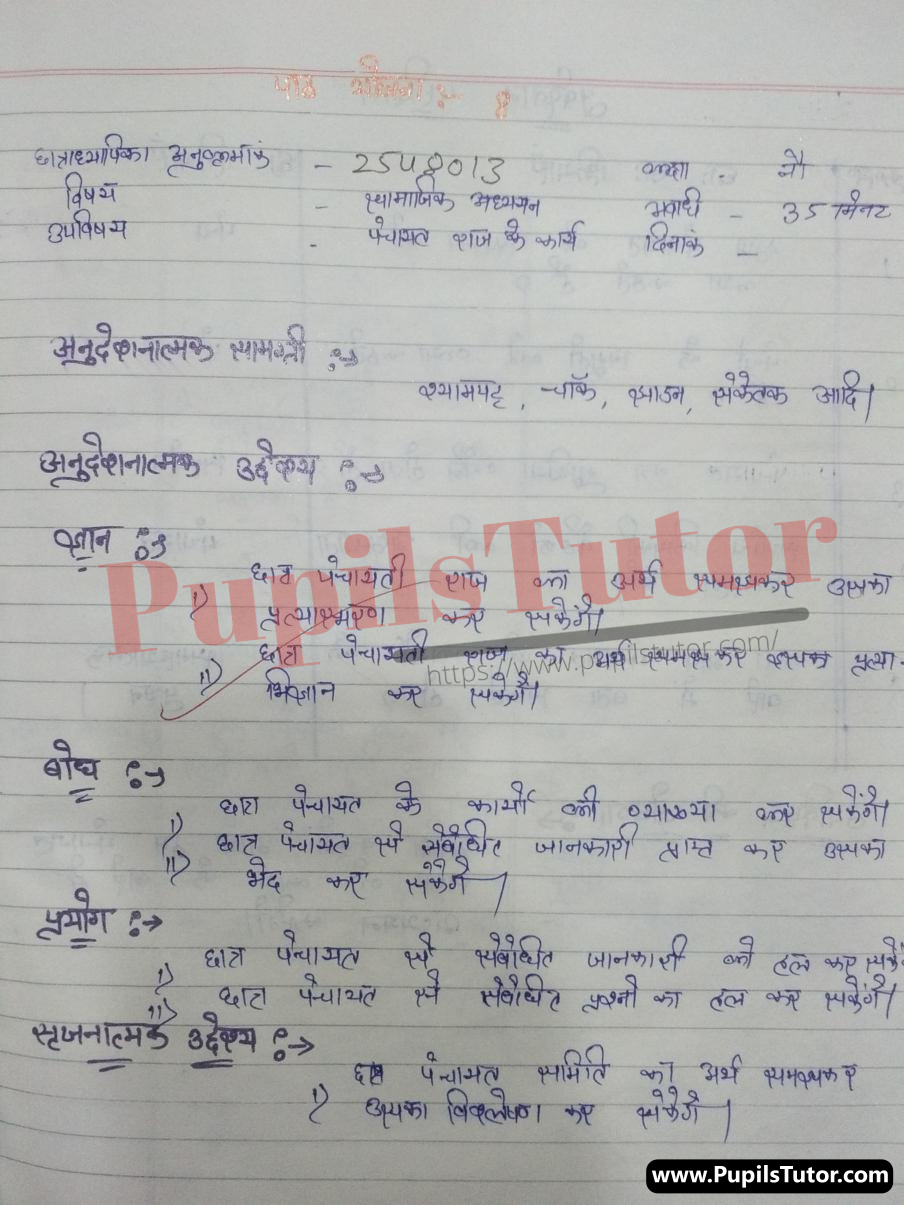 पाठ योजना :- 8
छात्राध्यापिका अनुक्रमांक - 2548013 कक्षा - नौ
विषय - सामाजिक अध्ययन अवधी - 35 मिनट
उपविषय - पंचायत राज के कार्य दिनांक -
अनुदेशनात्मक सामग्री :→
श्यामपट्ट, चॉक, झाडन, संकेतक आदि।
अनुदेशनात्मक उद्देश्य :→
ज्ञान :→
i) छात्र पंचायती राज का अर्थ समझकर उसका
प्रत्यास्मरण कर सकेंगे।
ii) छात्र पंचायती राज का अर्थ समझकर उसका प्रत्या-
भिज्ञान कर सकेंगे।
PupilsTutor
https://www.pupilstutor.com/
बोध :→
i) छात्र पंचायत के कार्यों की व्याख्या कर सकेंगे।
ii) छात्र पंचायत से संबंधित जानकारी प्राप्त कर उसका
भेद कर सकेंगे।
प्रयोग :→
i) छात्र पंचायत से संबंधित जानकारी को हल कर सकें
ii) छात्र पंचायत से संबंधित प्रश्नों का हल कर सकेंगे।
सृजनात्मक उद्देश्य :→
i) छात्र पंचायत समिति का अर्थ समझकर
उसका विश्लेषण कर सकेंगे।
www.PupilsTutor.com